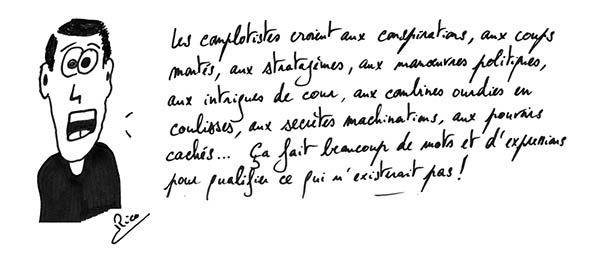 Les complotistes croient aux conspirations, aux coups
montés, aux stratagèmes, aux manœuvres politiques,
aux intrigues de cour, aux combines ourdies en
coulisses, aux secrètes machinations, aux pouvoirs
cachés... Ça fait beaucoup de mots et d'expressions
pour qualifier ce qui n'existerait pas !
Rico